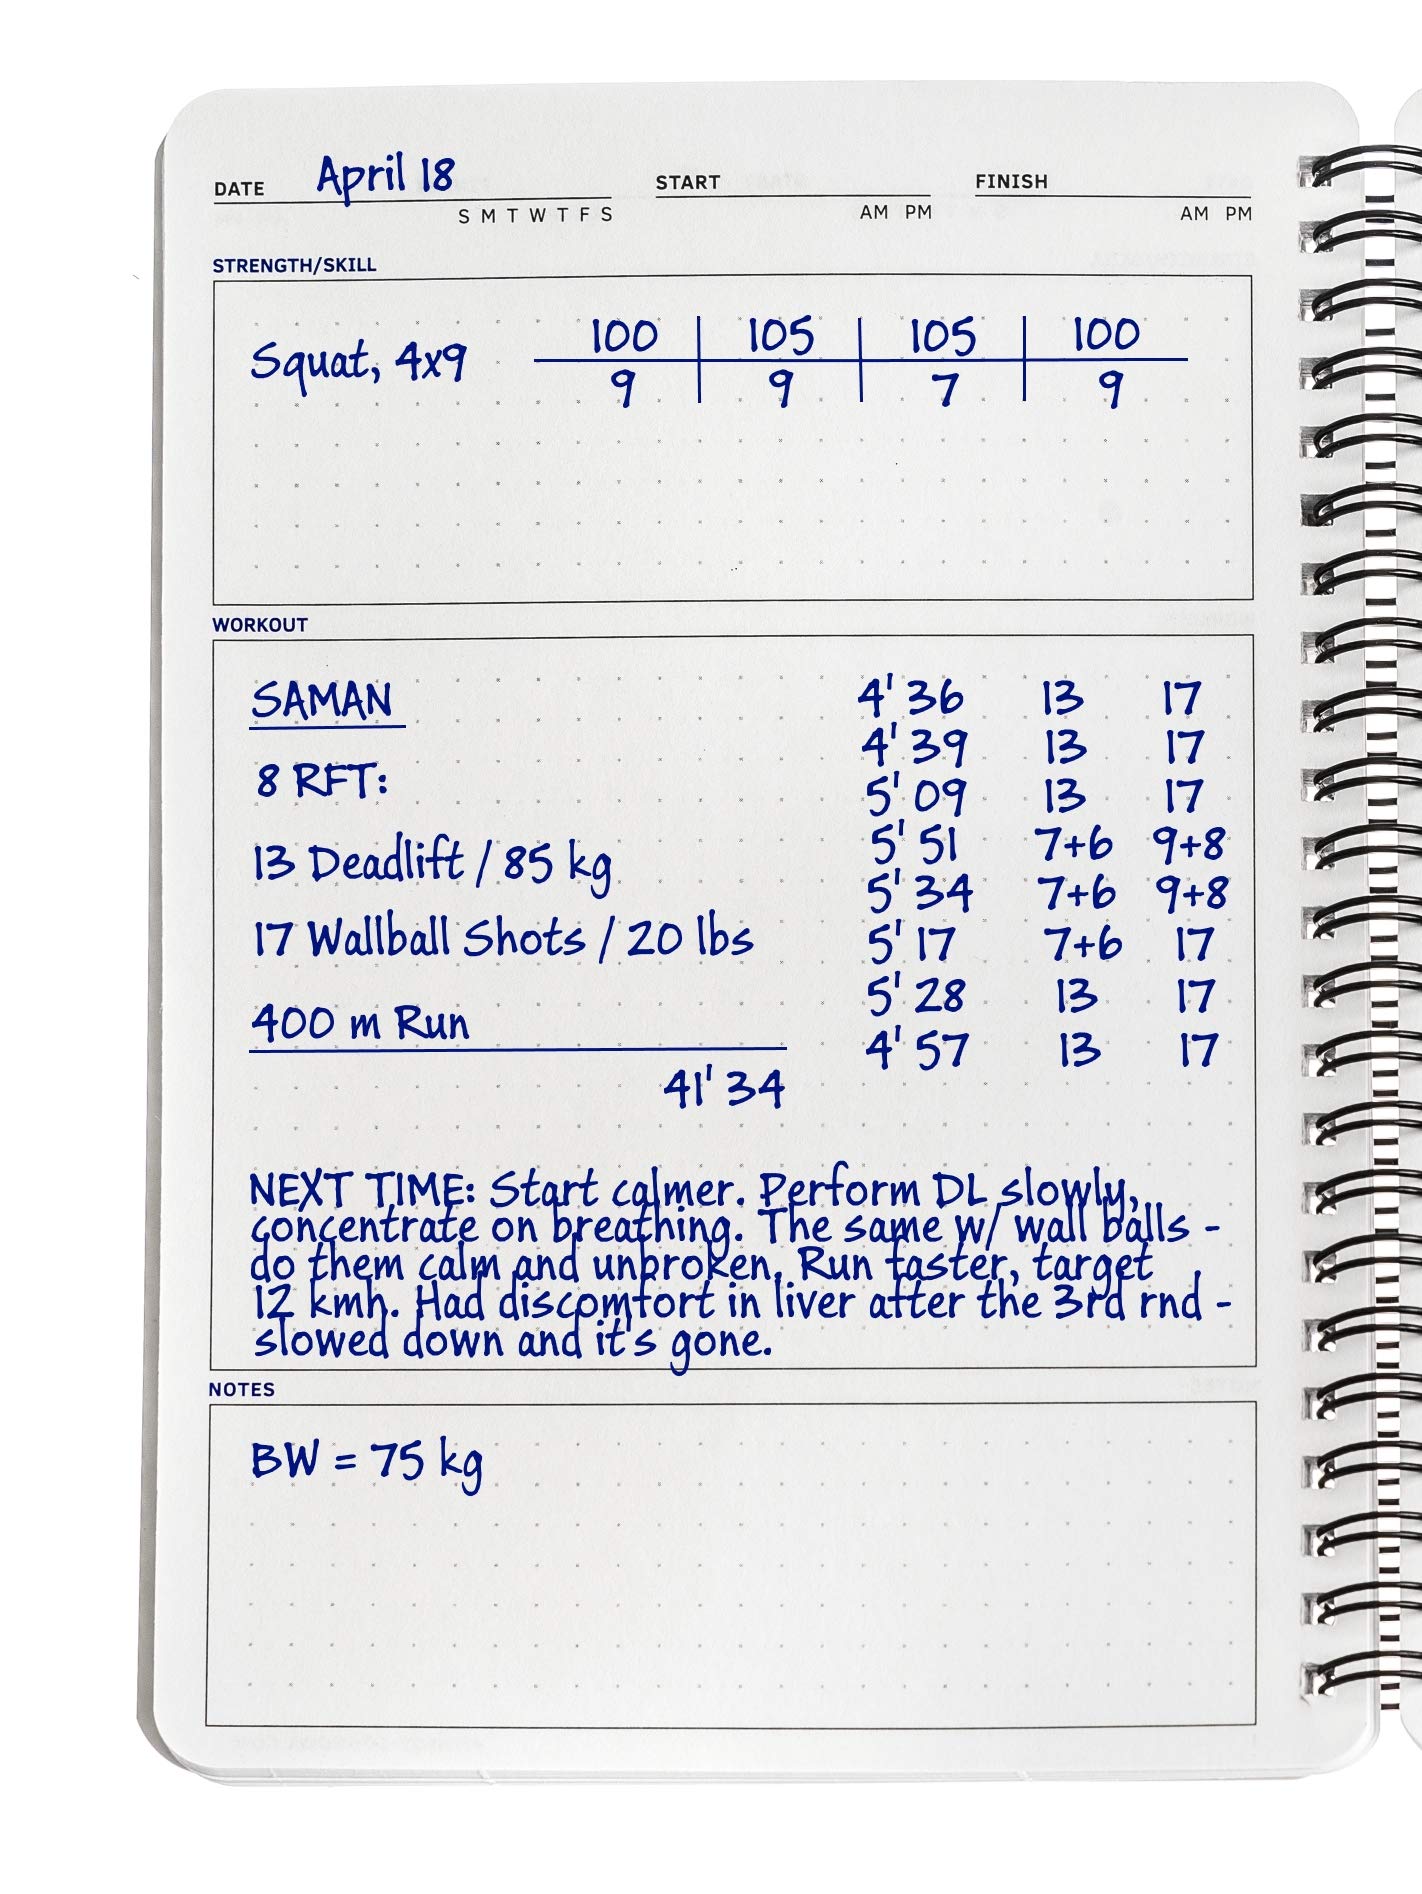 DATE April 18 START FINISH
S M T W T F S AM PM AM PM
STRENGTH/SKILL
100 105 105 100
Squat, 4x9
9 9 7 9
WORKOUT
SAMAN
8 RFT:
13 Deadlift / 85 kg
17 Wallball Shots / 20 lbs
400 m Run
41' 34
4' 36 13 17
4' 39 13 17
5' 09 13 17
5' 51 7+6 9+8
5' 34 7+6 9+8
5' 17 7+6 17
5' 28 13 17
4' 57 13 17
NEXT TIME: Start calmer. Perform DL slowly,
concentrate on breathing. The same w/ wall balls -
do them calm and unbroken. Run faster, target
12 kmh. Had discomfort in liver after the 3rd rnd -
slowed down and it's gone.
NOTES
BW = 75 kg